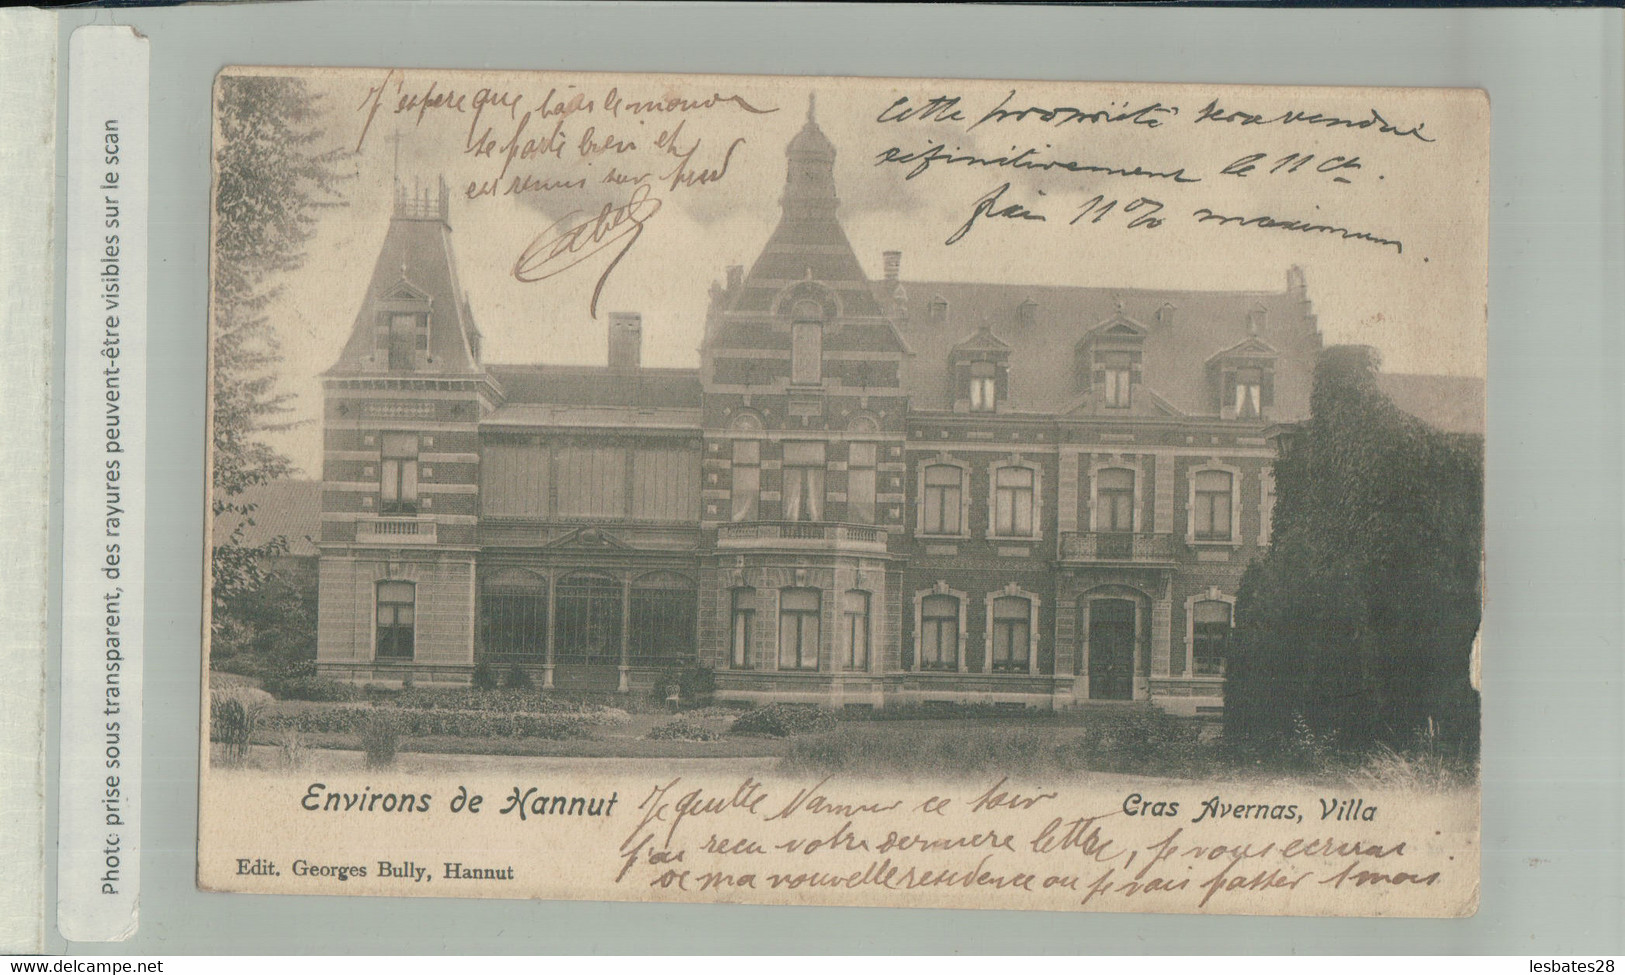 Photo prise sous transparent, des rayures peuvent-être visibles sur le scan
J'espere que tous le monde
se porte bien et
est remis sur pied
Abel
Cette propriété sera vendue
définitivement le 11 ct.
frais 11 % maximum.
Environs de Hannut
Cras Avernas, Villa
Je quitte Namur ce soir
j'ai recu votre dernière lettre, je vous ecrirai
de ma nouvelle residence ou je vais passer 1 mois
Edit. Georges Bully, Hannut
lesbates28